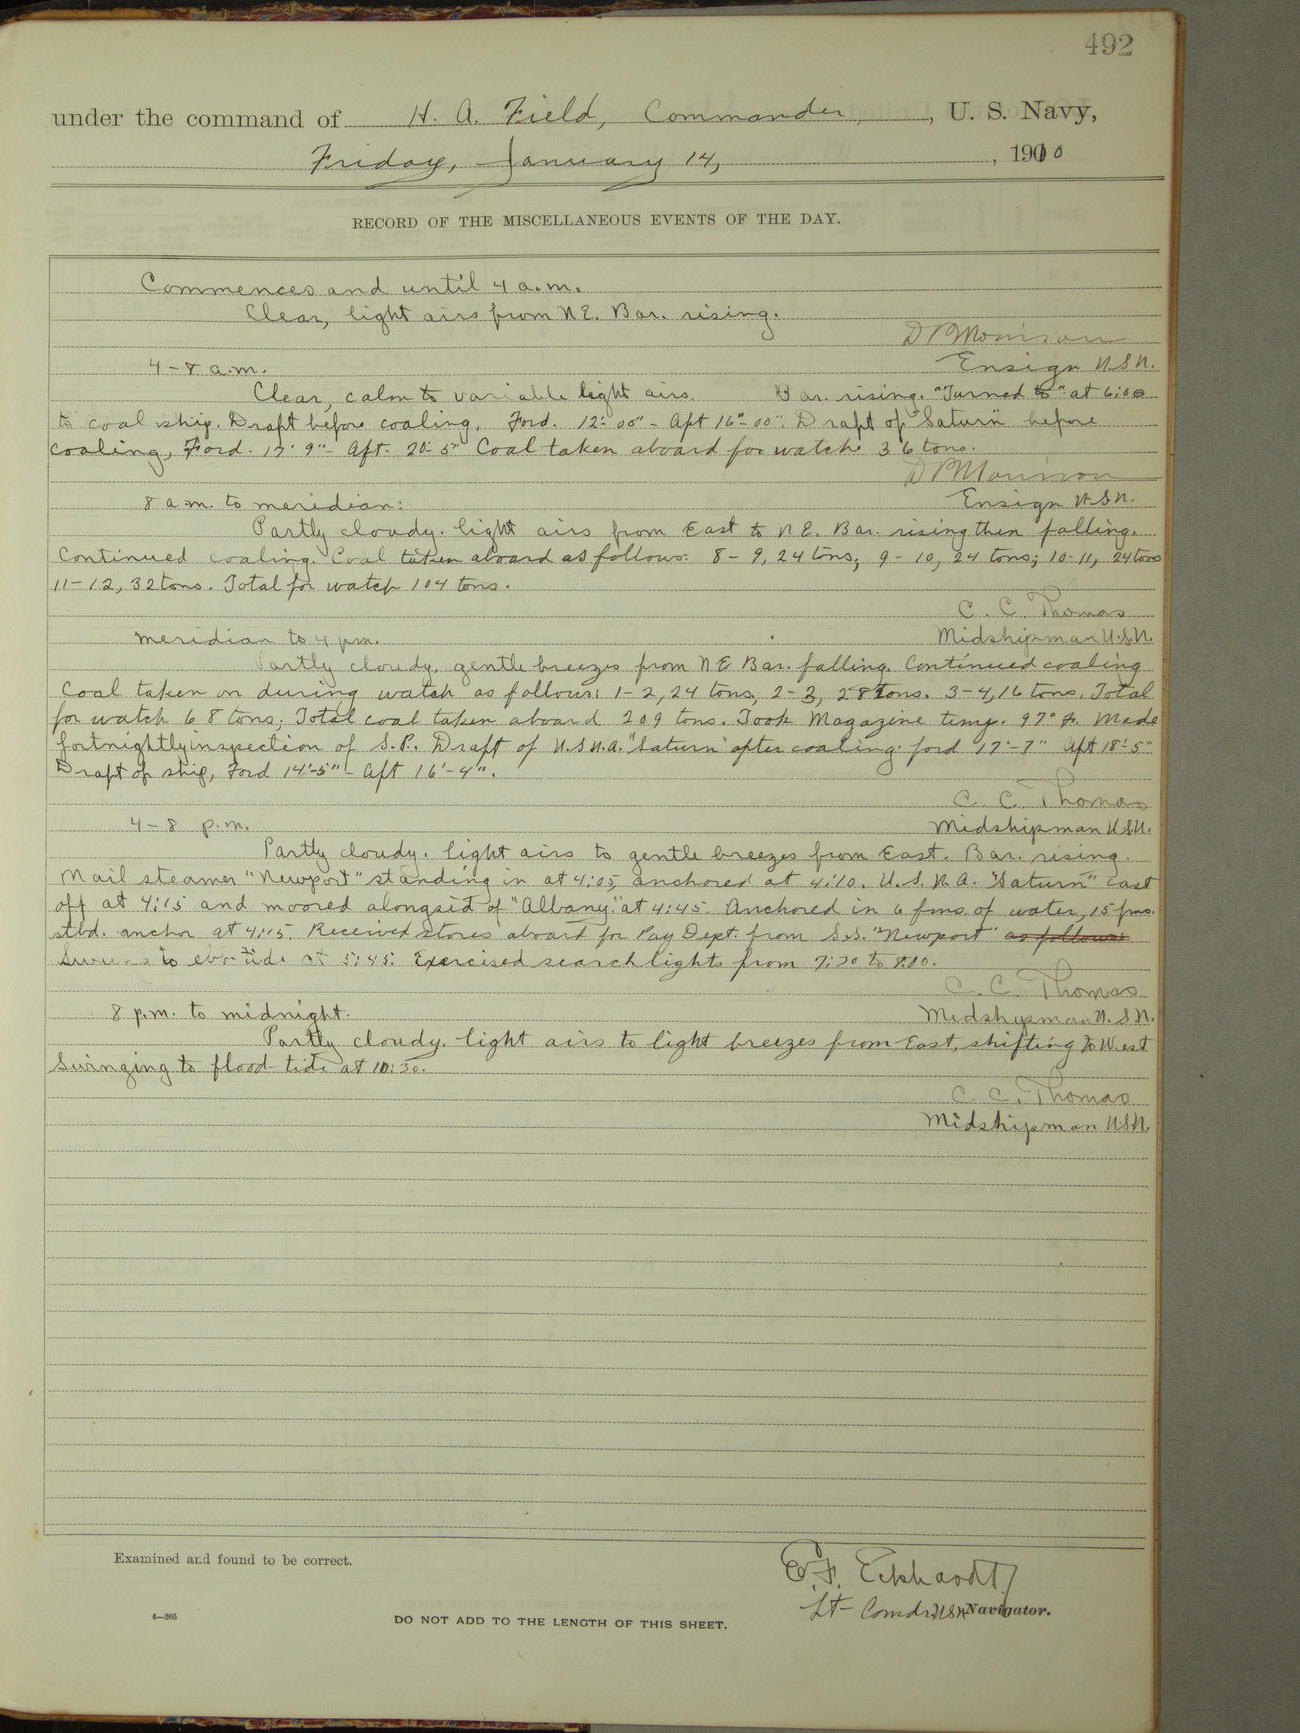 492
under the command of H. A. Field, Commander, U. S. Navy,
Friday, January 14, 1910
RECORD OF THE MISCELLANEOUS EVENTS OF THE DAY.
Commences and until 4 a.m.
Clear, light airs from N.E. Bar. rising.
D P Morrison
4-8 a.m.
Ensign U.S.N.
Clear, calm to variable light airs. Bar. rising. "Turned to" at 6:00
to coal ship. Draft before coaling, Ford. 12'-00" - Aft 16'-00". Draft of "Saturn" before
coaling, Ford. 17' 9" - Aft. 20'-5" Coal taken aboard for watch 36 tons.
D P Morrison
8 a.m. to meridian:
Ensign U.S.N.
Partly cloudy. light airs from East to N.E. Bar. rising then falling.
Continued coaling. Coal taken aboard as follows: 8-9, 24 tons; 9-10, 24 tons; 10-11, 24 tons
11-12, 32 tons. Total for watch 104 tons.
C. C. Thomas
meridian to 4 p.m.
Midshipman U.S.N.
Partly cloudy, gentle breezes from N E Bar. falling. Continued coaling
Coal taken on during watch as follows: 1-2, 24 tons, 2-3, 28 tons. 3-4, 16 tons. Total
for watch 68 tons; Total coal taken aboard 209 tons. Took Magazine temp. 97° F. Made
fortnightly inspection of S.P. Draft of U.S.N.A. "Saturn" after coaling: ford 17'-7" Aft 18'-5"
Draft of ship, Ford 14'-5" - Aft 16'-4".
C. C. Thomas
4-8 p.m.
Midshipman U.S.N.
Partly cloudy. light airs to gentle breezes from East. Bar. rising.
Mail steamer "Newport" standing in at 4:05, anchored at 4:10. U.S.N.A. "Saturn" cast
off at 4:15 and moored alongsid of "Albany." at 4:45. Anchored in 6 fms. of water, 15 fms.
stbd. anchor at 4:15. Received stores aboard for Pay Dept. from S.S. "Newport" as follows:
to ebb tide at 5:45. Exercised searchlights from 7:20 to 8:00.
C. C. Thomas
8 p.m. to midnight.
Midshipman U.S.N.
Partly cloudy. light airs to light breezes from East, shifting to West
Swinging to flood tide at 10:30.
C. C. Thomas
Midshipman U.S.N.
Examined and found to be correct.
E. F. Eckhardt
Lt-Comdr U.S.N. Navigator.
4-265
DO NOT ADD TO THE LENGTH OF THIS SHEET.